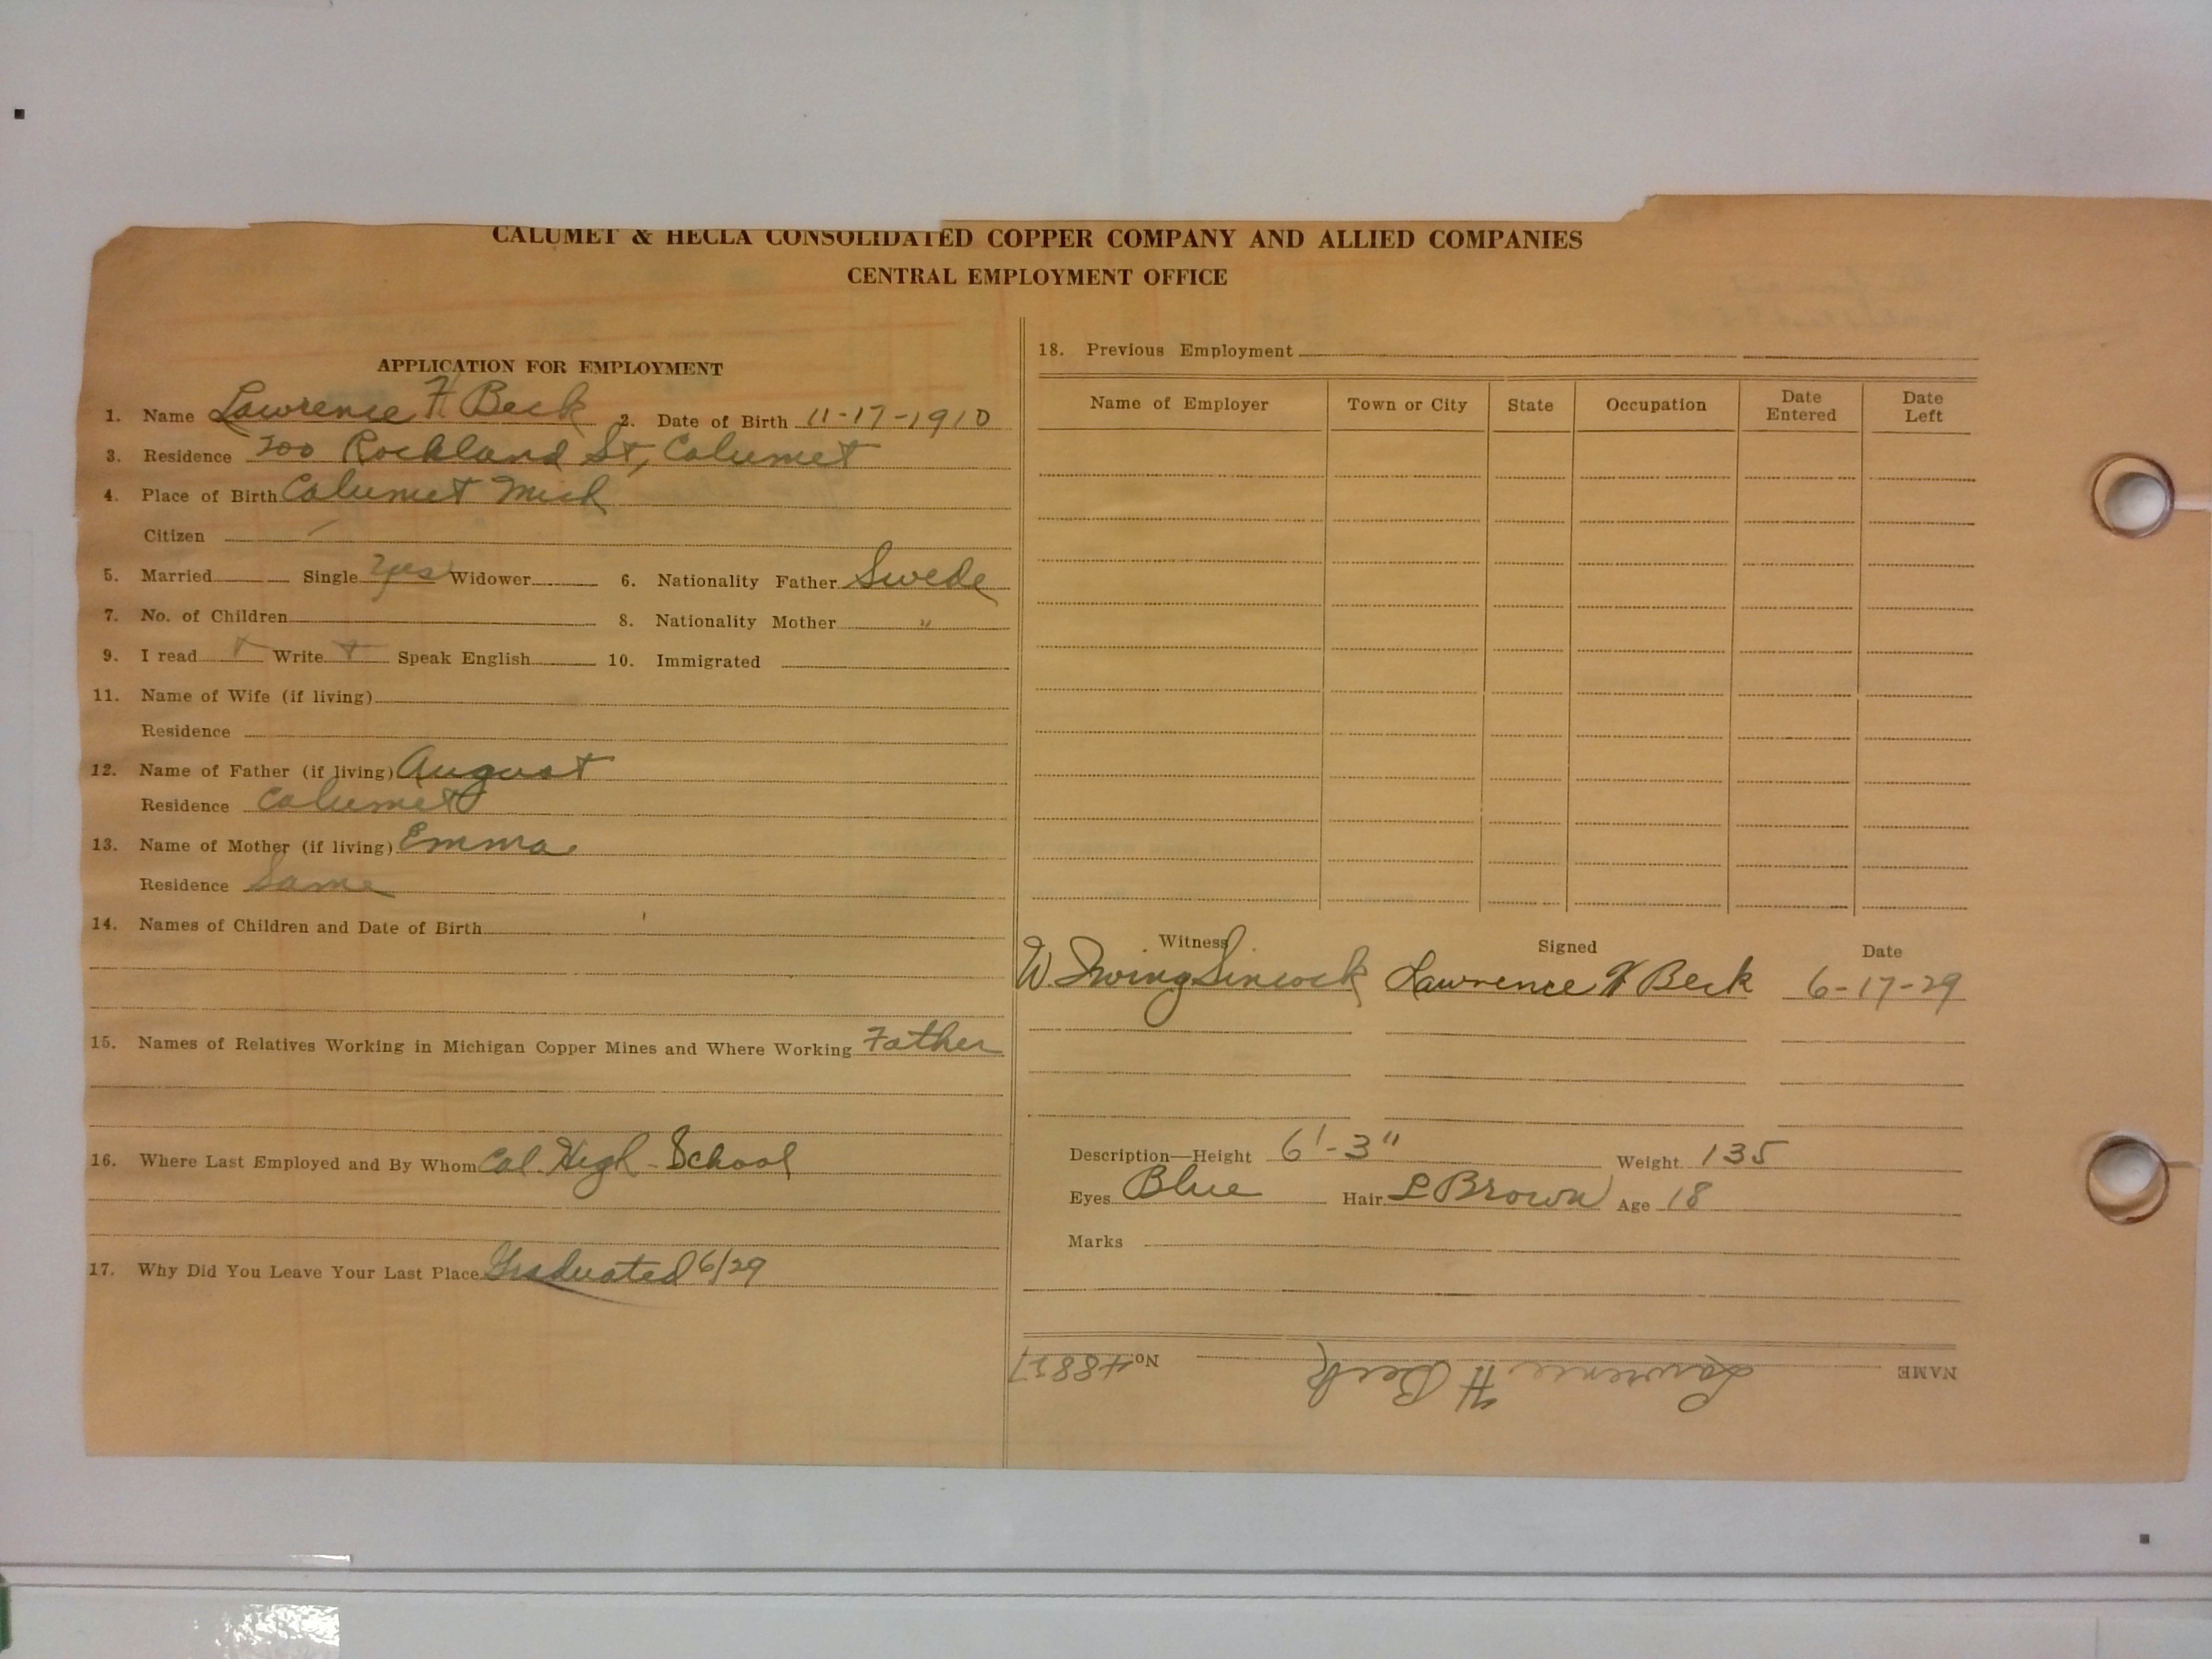 CALUMET & HECLA CONSOLIDATED COPPER COMPANY AND ALLIED COMPANIES
CENTRAL EMPLOYMENT OFFICE
APPLICATION FOR EMPLOYMENT
1. Name Lawrence H Beck 2. Date of Birth 11-17-1910
3. Residence 200 Rockland St, Calumet
4. Place of Birth Calumet Mich
Citizen
5. Married Single Yes Widower 6. Nationality Father Swede
7. No. of Children 8. Nationality Mother "
9. I read Write Speak English 10. Immigrated
11. Name of Wife (if living)
Residence
12. Name of Father (if living) August
Residence Calumet
13. Name of Mother (if living) Emma
Residence Same
14. Names of Children and Date of Birth
15. Names of Relatives Working in Michigan Copper Mines and Where Working Father
16. Where Last Employed and By Whom Cal. High - School
17. Why Did You Leave Your Last Place Graduated 6/29
18. Previous Employment
Name of Employer Town or City State Occupation Date Entered Date Left
Witness Signed Date
W. Irving Sincock Lawrence H Beck 6-17-29
Description—Height 6'-3" Weight 135
Eyes Blue Hair L Brown Age 18
Marks
NAME Lawrence H Beck No.